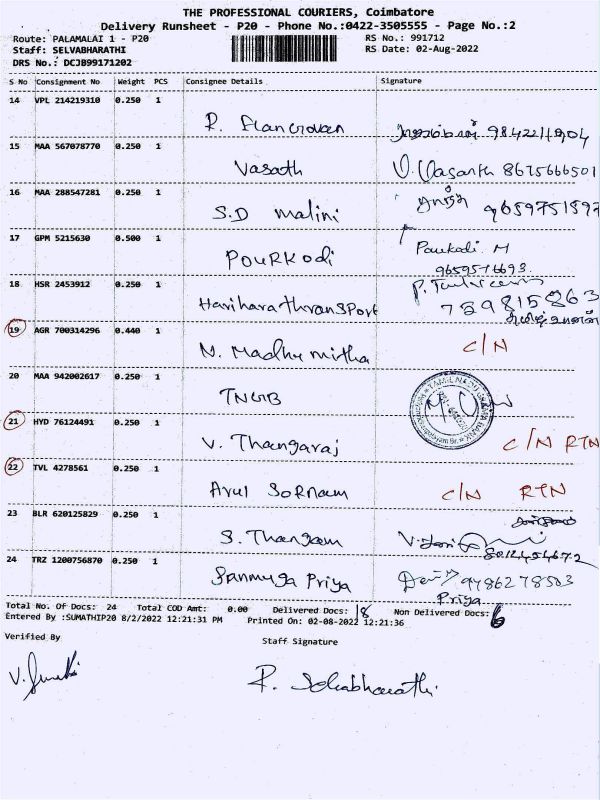 THE PROFESSIONAL COURIERS, Coimbatore
Delivery Runsheet - P20 - Phone No.:0422-3505555 - Page No.:2
Route: PALAMALAI 1 - P20 RS No.: 991712
Staff: SELVABHARATHI RS Date: 02-Aug-2022
DRS No.: DCJB99171202
S No Consignment No Weight PCS Consignee Details Signature
14 VPL 214219310 0.250 1
15 MAA 567078770 0.250 1 Vasanth V. Vasanth 8675666501
16 MAA 288547281 0.250 1 S.D Malini 9659751897
17 GPM 5215630 0.500 1 Pourkodi Pourkodi. M
9659516693
18 HSR 2453912 0.250 1 Hariharathransport 759815863
19 AGR 700314296 0.440 1 N. Madhumitha C/N
20 MAA 942002617 0.250 1 TNGB
21 HYD 76124491 0.250 1 V. Thangaraj C/N RTN
22 TVL 4278561 0.250 1 Arul Sornam C/N RTN
23 BLR 620125829 0.250 1 S. Thangam
24 TRZ 1200756870 0.250 1 Sanmuga Priya 9786278503
Priya
Total No. Of Docs: 24 Total COD Amt: 0.00 Delivered Docs: 18 Non Delivered Docs: 6
Entered By :SUMATHIP20 8/2/2022 12:21:31 PM Printed On: 02-08-2022 12:21:36
Verified By Staff Signature